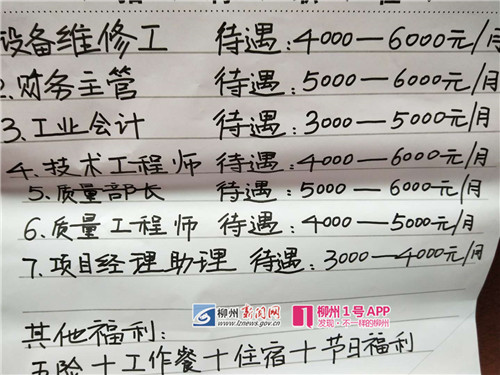 设备维修工 待遇:4000—6000元/月
2.财务主管 待遇:5000—6000元/月
3.工业会计 待遇:3000—5000元/月
4.技术工程师 待遇:4000—6000元/月
5.质量部长 待遇:5000—6000元/月
6.质量工程师 待遇:4000—5000元/月
7.项目经理助理 待遇:3000—4000元/月
柳州新闻网
www.lznews.gov.cn
1 柳州1号APP
发现·不一样的柳州
其他福利:
五险+工作餐+住宿+节日福利